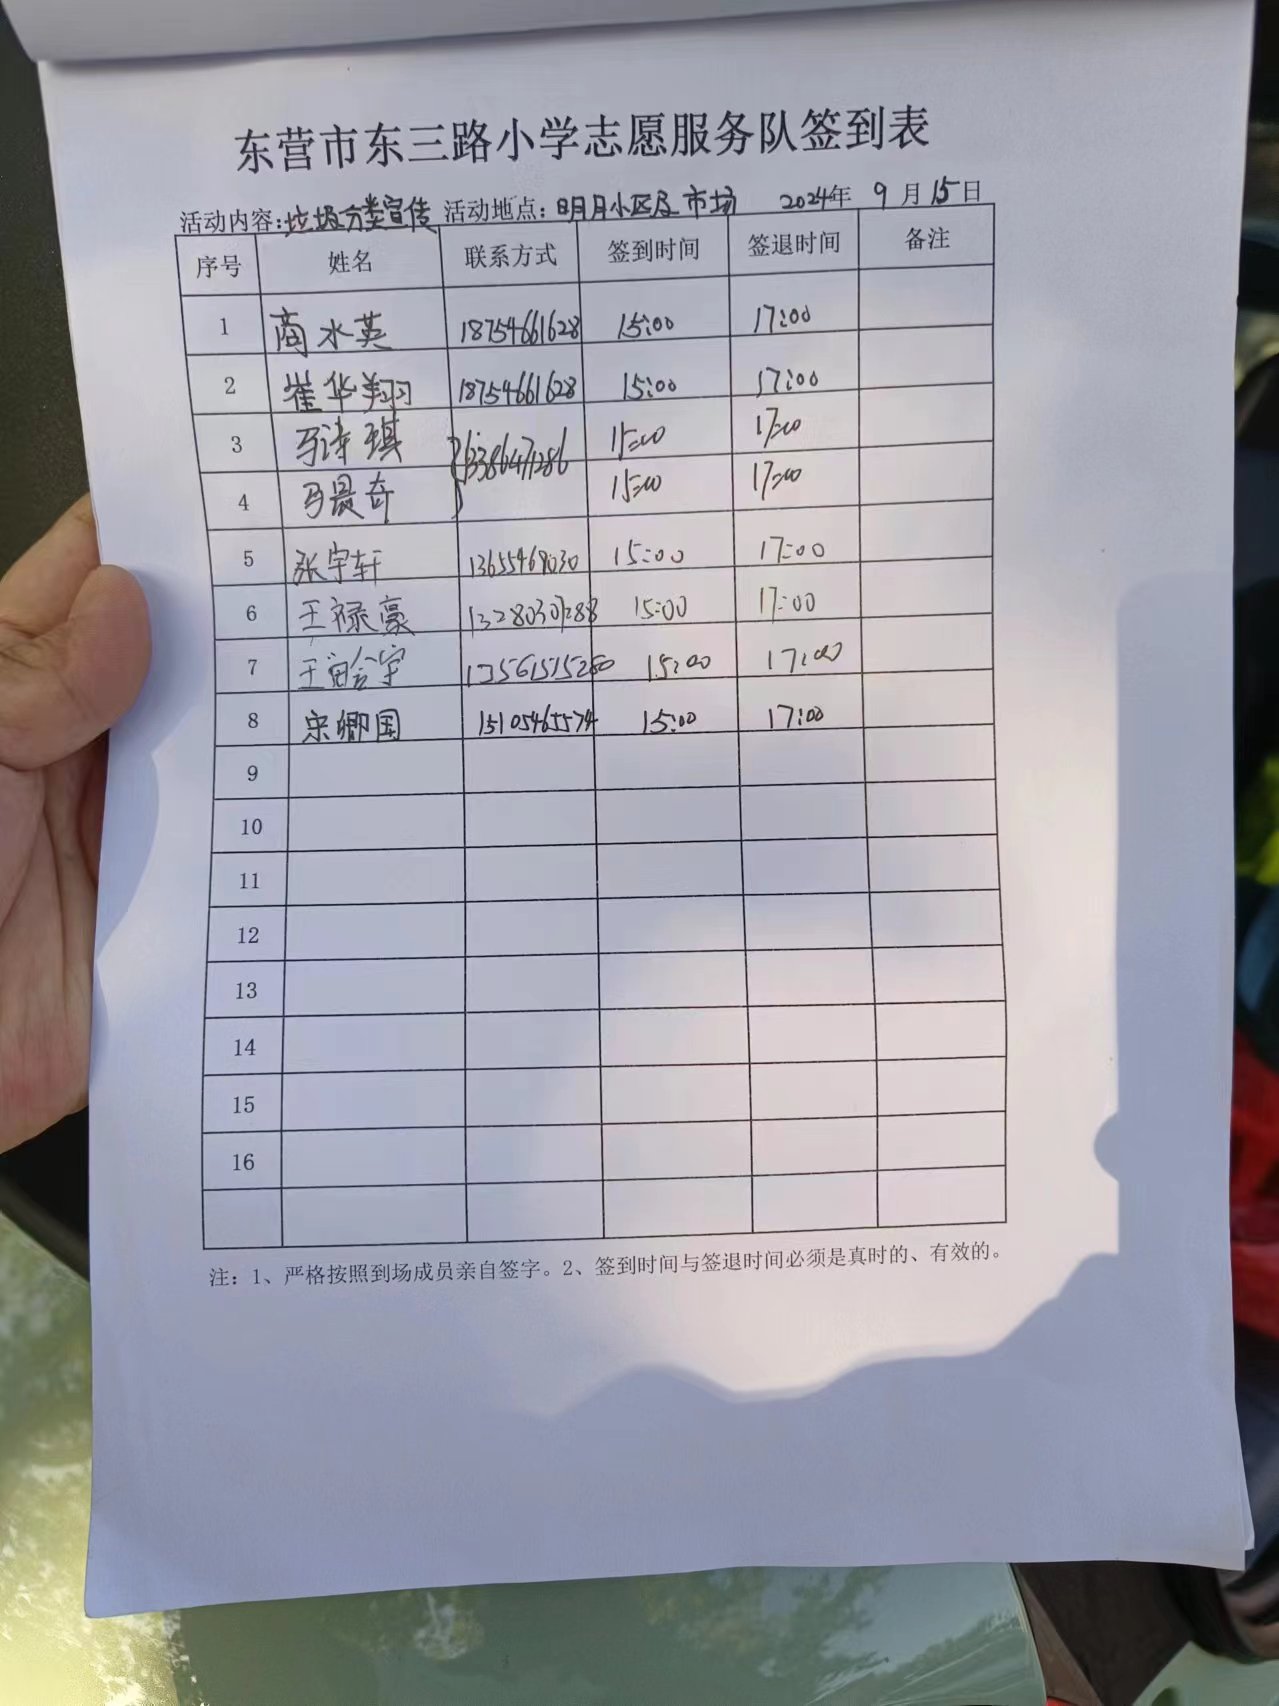 东营市东三路小学志愿服务队签到表
活动内容:垃圾分类宣传 活动地点:明月小区及市场 2024年 9 月 15 日
序号 姓名 联系方式 签到时间 签退时间 备注
1 商水英 18754661628 15:00 17:00
2 崔华翔 18754661628 15:00 17:00
3 马诗琪 15:00 17:00
4 马晨奇 15:00 17:00
5 张宇轩 15:00 17:00
6 王禄豪 15:00 17:00
7 王 宇 13561515280 15:00 17:00
8 宋卿国 15105465574 15:00 17:00
9
10
11
12
13
14
15
16
注：1、严格按照到场成员亲自签字。2、签到时间与签退时间必须是真时的、有效的。